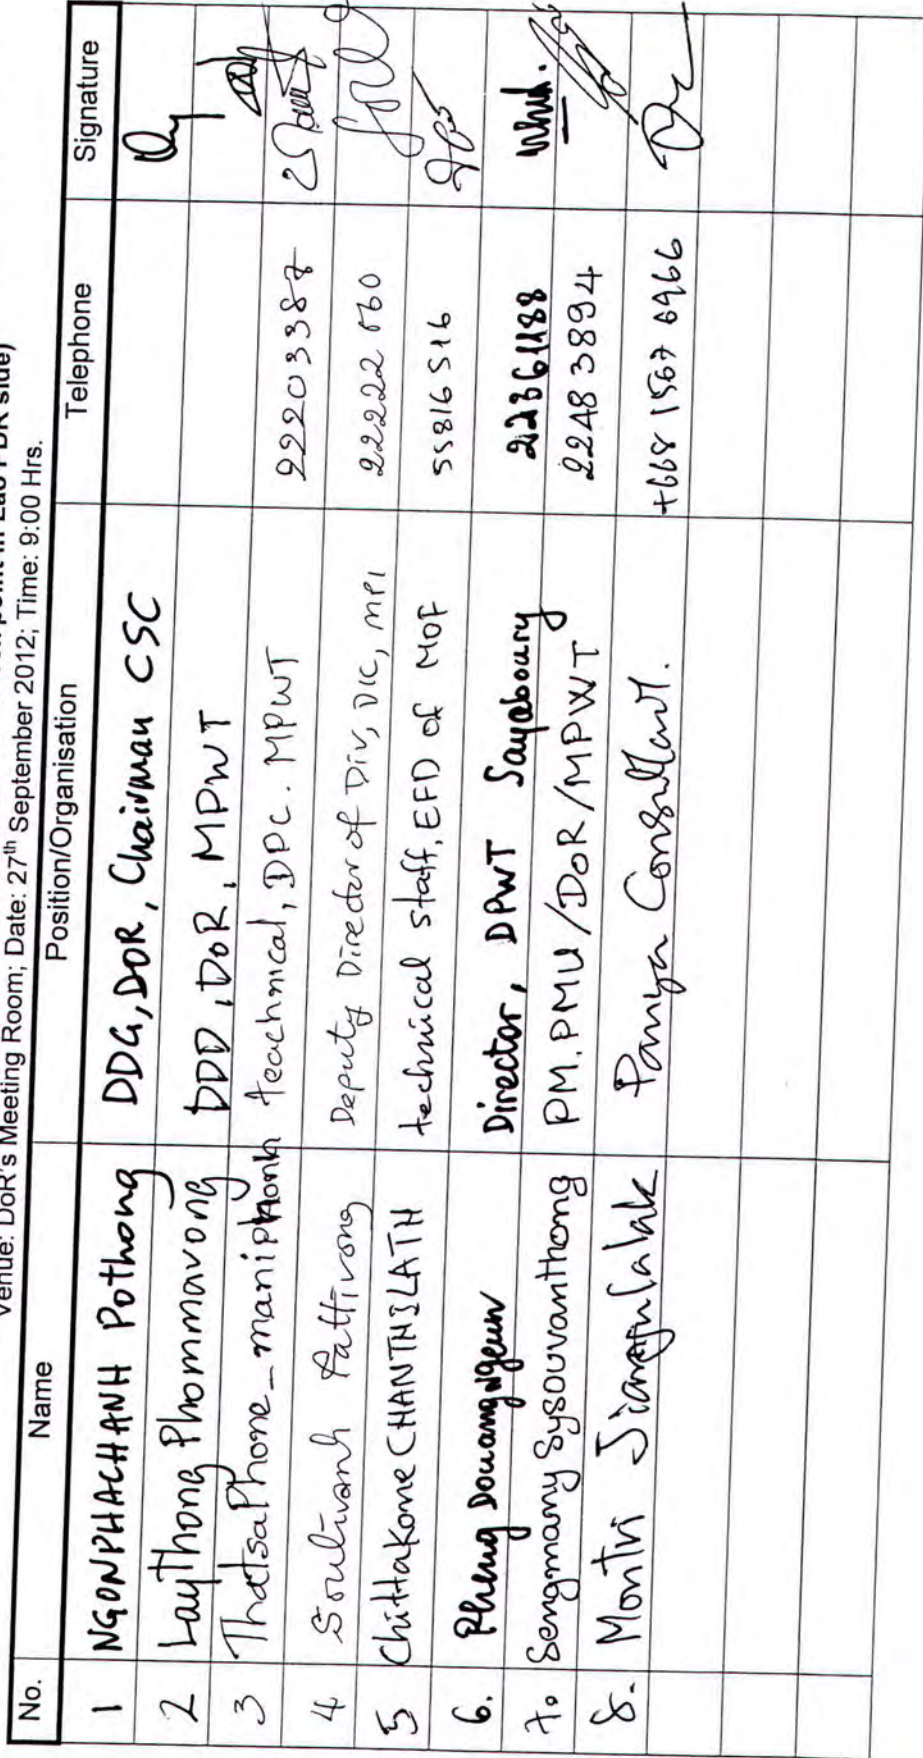 point in Lao PDR side)
Venue: DoR's Meeting Room; Date: 27th September 2012; Time: 9:00 Hrs.
No. Name Position/Organisation Telephone Signature
1 NGONPHACHANH Pothong DDG, DOR, Chairman CSC
2 Laythong Phommavong DDD, DoR, MPWT
3 Thatsaphone_maniphonh teachnical, DPC. MPWT 22203387
4 Soulivanh Pattivong Deputy Director of Div, DIC, MPI 22222560
5 Chittakone CHANTHILATH technical staff, EFD of MOF 55816516
6. Pheng Douangngeun Director, DPWT Sayaboury 22361188
7. Sengmany Sysouvanthong PM.PMU/DoR/MPWT 2248 3894
8. Montri Panya Consultant. +668 1567 6966